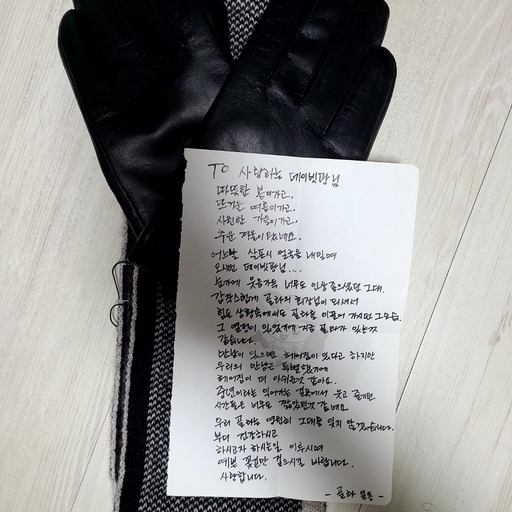 TO 사랑하는 데이빗팡님
따뜻한 봄이가고,
뜨거운 여름이가고,
시원한 가을이가고,
추운 겨울이 왔네요.
어느날 살포시 얼굴을 내밀며
오시던 데이빗팡님....
눈가에 웃음가득 너무도 인상좋으셨던 그대.
갑작스럽게 골타의 회장님이 되셔서
힘든 상황속에서도 골타를 이끌어 가시던 그모습.
그 열정이 있었기에 지금 골타가 있는것
같습니다.
만남이 있으면 헤어짐이 있다고 하지만
우리의 만남은 특별했기에
헤어짐이 더 아쉬운것 같아요.
중년이라는 익어가는 길목에서 웃고 즐기던
시간들은 너무도 짧았던것 같네요.
우리 골타는 영원히 그대를 잊지 않겠습니다.
부디 건강하시고
하시고자 하시는일 이루시며
예쁜 꽃길만 걸으시길 바랍니다.
사랑합니다.
- 골타 일동 -